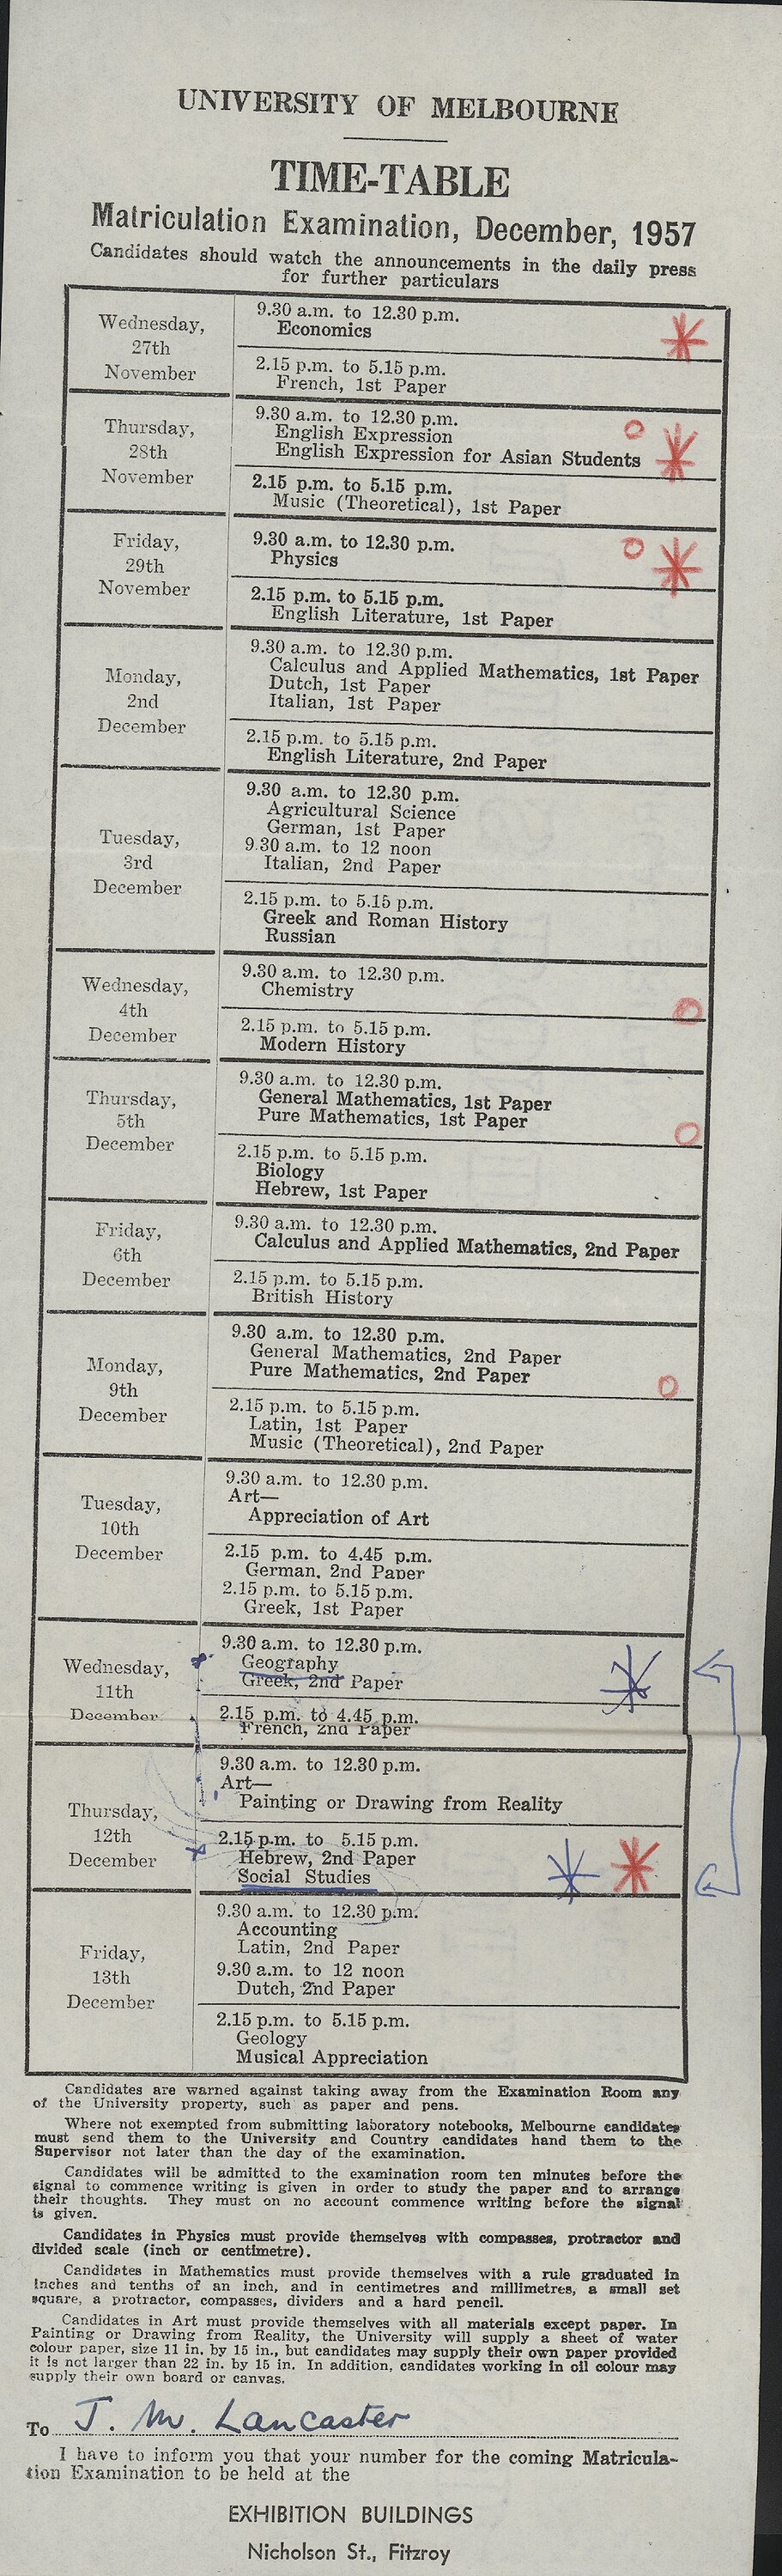 UNIVERSITY OF MELBOURNE
TIME-TABLE
Matriculation Examination, December, 1957
Candidates should watch the announcements in the daily press
for further particulars
Wednesday,
27th
November
9.30 a.m. to 12.30 p.m.
Economics
2.15 p.m. to 5.15 p.m.
French, 1st Paper
Thursday,
28th
November
9.30 a.m. to 12.30 p.m.
English Expression
English Expression for Asian Students
2.15 p.m. to 5.15 p.m.
Music (Theoretical), 1st Paper
Friday,
29th
November
9.30 a.m. to 12.30 p.m.
Physics
2.15 p.m. to 5.15 p.m.
English Literature, 1st Paper
Monday,
2nd
December
9.30 a.m. to 12.30 p.m.
Calculus and Applied Mathematics, 1st Paper
Dutch, 1st Paper
Italian, 1st Paper
2.15 p.m. to 5.15 p.m.
English Literature, 2nd Paper
Tuesday,
3rd
December
9.30 a.m. to 12.30 p.m.
Agricultural Science
German, 1st Paper
9.30 a.m. to 12 noon
Italian, 2nd Paper
2.15 p.m. to 5.15 p.m.
Greek and Roman History
Russian
Wednesday,
4th
December
9.30 a.m. to 12.30 p.m.
Chemistry
2.15 p.m. to 5.15 p.m.
Modern History
Thursday,
5th
December
9.30 a.m. to 12.30 p.m.
General Mathematics, 1st Paper
Pure Mathematics, 1st Paper
2.15 p.m. to 5.15 p.m.
Biology
Hebrew, 1st Paper
Friday,
6th
December
9.30 a.m. to 12.30 p.m.
Calculus and Applied Mathematics, 2nd Paper
2.15 p.m. to 5.15 p.m.
British History
Monday,
9th
December
9.30 a.m. to 12.30 p.m.
General Mathematics, 2nd Paper
Pure Mathematics, 2nd Paper
2.15 p.m. to 5.15 p.m.
Latin, 1st Paper
Music (Theoretical), 2nd Paper
Tuesday,
10th
December
9.30 a.m. to 12.30 p.m.
Art—
Appreciation of Art
2.15 p.m. to 4.45 p.m.
German, 2nd Paper
2.15 p.m. to 5.15 p.m.
Greek, 1st Paper
Wednesday,
11th
December
9.30 a.m. to 12.30 p.m.
Geography
Greek, 2nd Paper
2.15 p.m. to 4.45 p.m.
French, 2nd Paper
Thursday,
12th
December
9.30 a.m. to 12.30 p.m.
Art—
Painting or Drawing from Reality
2.15 p.m. to 5.15 p.m.
Hebrew, 2nd Paper
Social Studies
Friday,
13th
December
9.30 a.m. to 12.30 p.m.
Accounting
Latin, 2nd Paper
9.30 a.m. to 12 noon
Dutch, 2nd Paper
2.15 p.m. to 5.15 p.m.
Geology
Musical Appreciation
Candidates are warned against taking away from the Examination Room any
of the University property, such as paper and pens.
Where not exempted from submitting laboratory notebooks, Melbourne candidates
must send them to the University and Country candidates hand them to the
Supervisor not later than the day of the examination.
Candidates will be admitted to the examination room ten minutes before the
signal to commence writing is given in order to study the paper and to arrange
their thoughts. They must on no account commence writing before the signal
is given.
Candidates in Physics must provide themselves with compasses, protractor and
divided scale (inch or centimetre).
Candidates in Mathematics must provide themselves with a rule graduated in
inches and tenths of an inch, and in centimetres and millimetres, a small set
square, a protractor, compasses, dividers and a hard pencil.
Candidates in Art must provide themselves with all materials except paper. In
Painting or Drawing from Reality, the University will supply a sheet of water
colour paper, size 11 in. by 15 in., but candidates may supply their own paper provided
it is not larger than 22 in. by 15 in. In addition, candidates working in oil colour may
supply their own board or canvas.
To J. M. Lancaster
I have to inform you that your number for the coming Matricula-
tion Examination to be held at the
EXHIBITION BUILDINGS
Nicholson St., Fitzroy